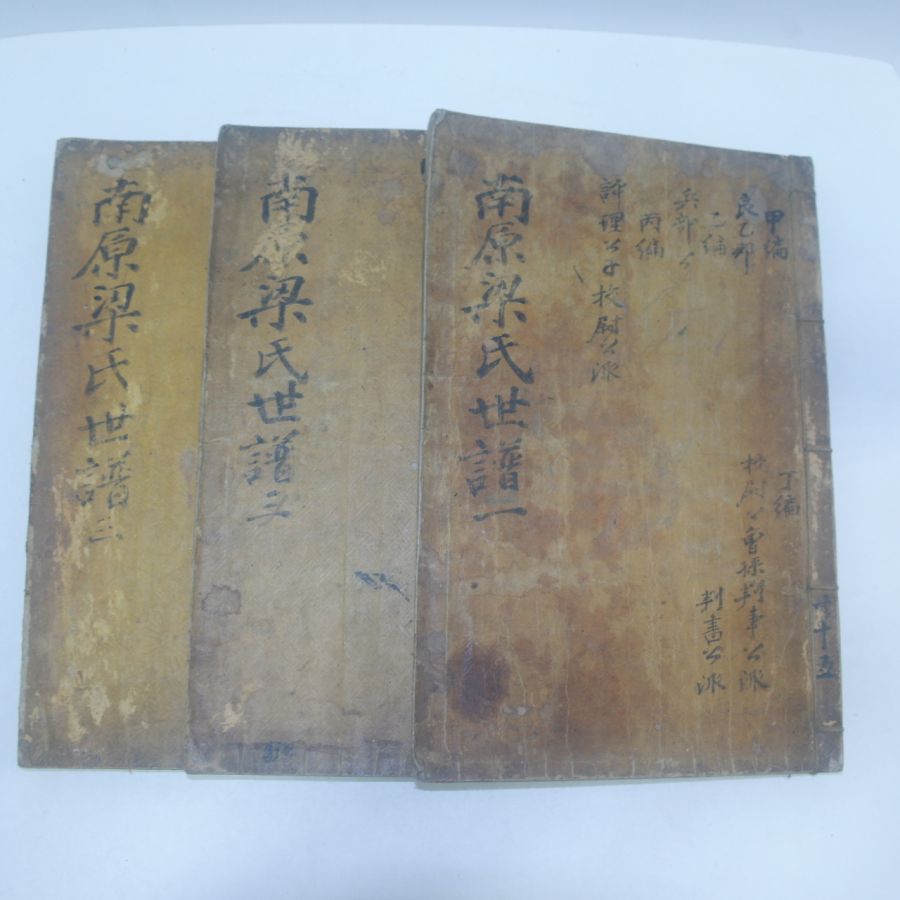 南原梁氏世譜一
甲編
良乙那
乙編
兵部公
丙編
許理公子校尉公派
丁編
校尉公曾孫判事公派
判書公派
十五
南原梁氏世譜
南原梁氏世譜三